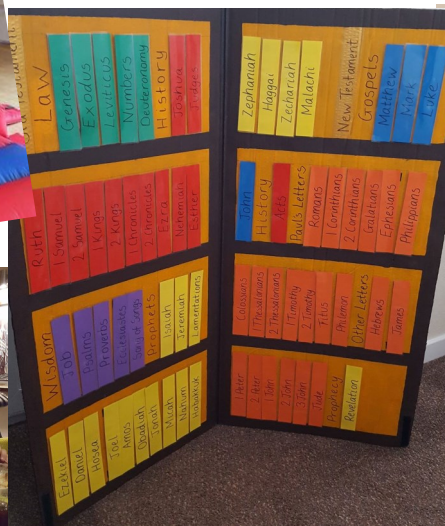 Law
Genesis
Exodus
Leviticus
Numbers
Deuteronomy
History
Joshua
Judges
Ruth
1 Samuel
2 Samuel
1 Kings
2 Kings
1 Chronicles
2 Chronicles
Ezra
Nehemiah
Esther
Wisdom
Job
Psalms
Proverbs
Ecclesiastes
Song of Songs
Prophets
Isaiah
Jeremiah
Lamentations
Ezekiel
Daniel
Hosea
Joel
Amos
Obadiah
Jonah
Micah
Nahum
Habakkuk
Zephaniah
Haggai
Zechariah
Malachi
New Testament
Gospels
Matthew
Mark
Luke
John
History
Acts
Paul's Letters
Romans
1 Corinthians
2 Corinthians
Galatians
Ephesians
Philippians
Colossians
1 Thessalonians
2 Thessalonians
1 Timothy
2 Timothy
Titus
Philemon
Other Letters
Hebrews
James
1 Peter
2 Peter
1 John
2 John
3 John
Jude
Prophecy
Revelation